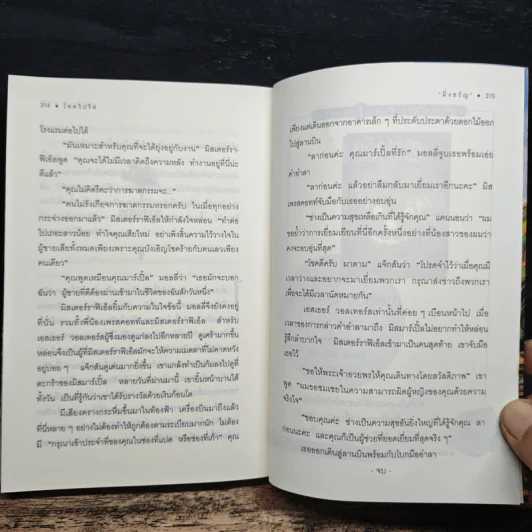 314 • โจลิปริต
โรงแรมต่อไปได้
"มันเหมาะสำหรับคุณที่จะได้ยุ่งอยู่กับงาน" มิสเตอร์รา
ฟิเอิลพูด "คุณจะได้ไม่มีเวลาคิดถึงความหลัง ทำงานอยู่ที่นี่น่ะ
ดีแล้ว"
"คุณไม่คิดรึคะว่าการฆาตกรรมจะ..."
"คนไม่รังเกียจการฆาตกรรมหรอกครับ ในเมื่อทุกอย่าง
กระจ่างออกมาแล้ว" มิสเตอร์ราฟิเอิลให้กำลังใจหล่อน "ทำต่อ
ไปเถอะสาวน้อย ทำใจคุณเสียใหม่ อย่าเพิ่งสิ้นความไว้วางใจใน
ผู้ชายเสียทั้งหมดเพียงเพราะคุณบังเอิญโชคร้ายกับคนเลวเพียง
คนเดียว"
"คุณพูดเหมือนคุณมาร์เปิ้ล" มอลลี่ว่า "เธอมักจะบอก
ฉันว่า ผู้ชายที่ดีต้องผ่านเข้ามาในชีวิตของฉันสักวันหนึ่ง"
มิสเตอร์ราฟิเอิลยิ้มกับความในใจข้อนี้ มอลลี่จึงยังคงอยู่
ที่นี่ รวมทั้งพี่น้องเพรสคอทท์และมิสเตอร์ราฟิเอิล สำหรับ
เอสเธอร์ วอลเทอร์สผู้ซึ่งมองดูแก่ลงไปอีกหลายปี ดูเศร้ามากขึ้น
หล่อนจึงเป็นผู้ที่มิสเตอร์ราฟิเอิลมักจะให้ความเมตตาที่ไม่คาดหวัง
อยู่บ่อย ๆ แจ็กสันดูเด่นมากยิ่งขึ้น เขาแกล้งทำเป็นก้มลงไปดูที่
ตะกร้าของมิสมาร์เปิ้ล หลายวันที่ผ่านมานี้ เขายิ้มหน้าบานได้
ทั้งวัน เป็นที่รู้กันดีว่าเขาได้รับรางวัลด้วยเงินก้อนโต
มีเสียงครางกระหึ่มขึ้นมาในท้องฟ้า เครื่องบินมาถึงแล้ว
ที่นี่หลาย ๆ อย่างไม่ต้องทำให้ถูกต้องตามระเบียบมากนัก ไม่ต้อง
มี "กรุณาเข้าประจำที่ของคุณในช่องที่แปด หรือช่องที่เก้า" คุณ
'มิ่งขวัญ' • 315
เพียงแต่เดินออกจากอาคารเล็ก ๆ ที่ประดับประดาด้วยดอกไม้ออก
ไปสู่ลานบิน
"ลาก่อนค่ะ คุณมาร์เปิ้ลที่รัก" มอลลี่จูบเธอพร้อมเอ่ย
คำอำลา
"ลาก่อนค่ะ แล้วอย่าลืมกลับมาเยี่ยมเราอีกนะคะ" มิส
เพรสคอทท์จับมือกับเธออย่างอบอุ่น
"ช่างเป็นความสุขเหลือเกินที่ได้รู้จักคุณ" แคนนอนว่า "ผม
ขอย้ำการเยี่ยมเยียนที่นี่อีกครั้งหนึ่งอย่างที่น้องสาวของผมว่า
คงจะอบอุ่นที่สุด"
"โชคดีครับ มาดาม" แจ็กสันว่า "โปรดจำไว้ว่าเมื่อคุณมี
เวลาว่างและอยากจะมาเยี่ยมพวกเรา กรุณาส่งข่าวถึงพวกเรา
เพื่อจะได้มีเวลานัดหมายกัน"
เอสเธอร์ วอลเทอร์สเท่านั้นที่ค่อย ๆ เบือนหน้าไป เมื่อ
เวลาของการกล่าวคำอำลามาถึง มิสมาร์เปิ้ลไม่อยากทำให้หล่อน
รู้สึกลำบากใจ มิสเตอร์ราฟิเอิลเข้ามาเป็นคนสุดท้าย เขาจับมือ
เธอไว้
"ขอให้พระเจ้าอวยพรให้คุณเดินทางโดยสวัสดิภาพ" เขา
พูด "ผมขอชมเชยในความสามารถมิตผู้หญิงของคุณด้วยความ
จริงใจ"
"ขอบคุณค่ะ ช่างเป็นความสุขอันยิ่งใหญ่ที่ได้รู้จักคุณ ลา
ก่อนนะคะ และคุณก็เป็นผู้ช่วยที่ยอดเยี่ยมที่สุดจริง ๆ"
เธอออกเดินสู่ลานบินพร้อมกับโบกมืออำลา
- จบ -